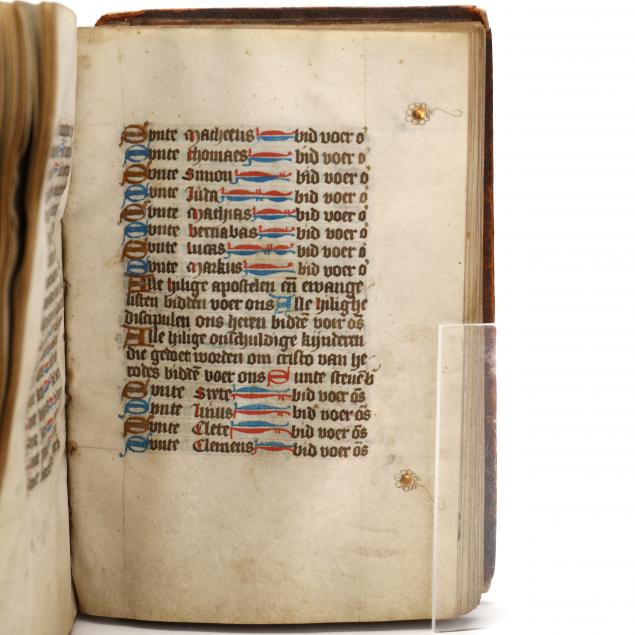 Synte Matheeus bid voer o
Synte thomaes bid voer o
Synte Simon bid voer o
Synte Juda bid voer o
Synte Mathias bid voer o
Synte bernabas bid voer o
Synte lucas bid voer o
Synte Markus bid voer o
Alle hilige apostelen en̄ ewange
listen bidden voer ons Alle hilighe
discipulen ons heren biddē voer os̄
Alle hilige onschuldige kijnderen
die gedoet worden om cristo van he
rodes biddē voer ons Sunte steuē
Synte bid voer os̄
Synte linus bid voer os̄
Synte Clete bid voer os̄
Synte Clemens bid voer os̄